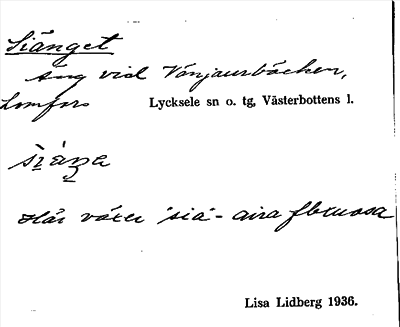 Siänget
äng vid Vänjaurbäcken,
Lomfors Lycksele sn o. tg, Västerbottens l.
Här växer "siä" - aira flexuosa
Lisa Lidberg 1936.